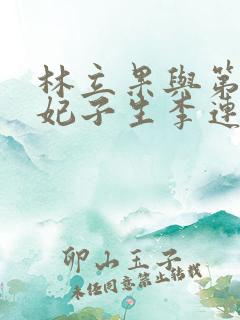 林立果與第
妃子生李連
卯山玉子
未经同意禁止转载